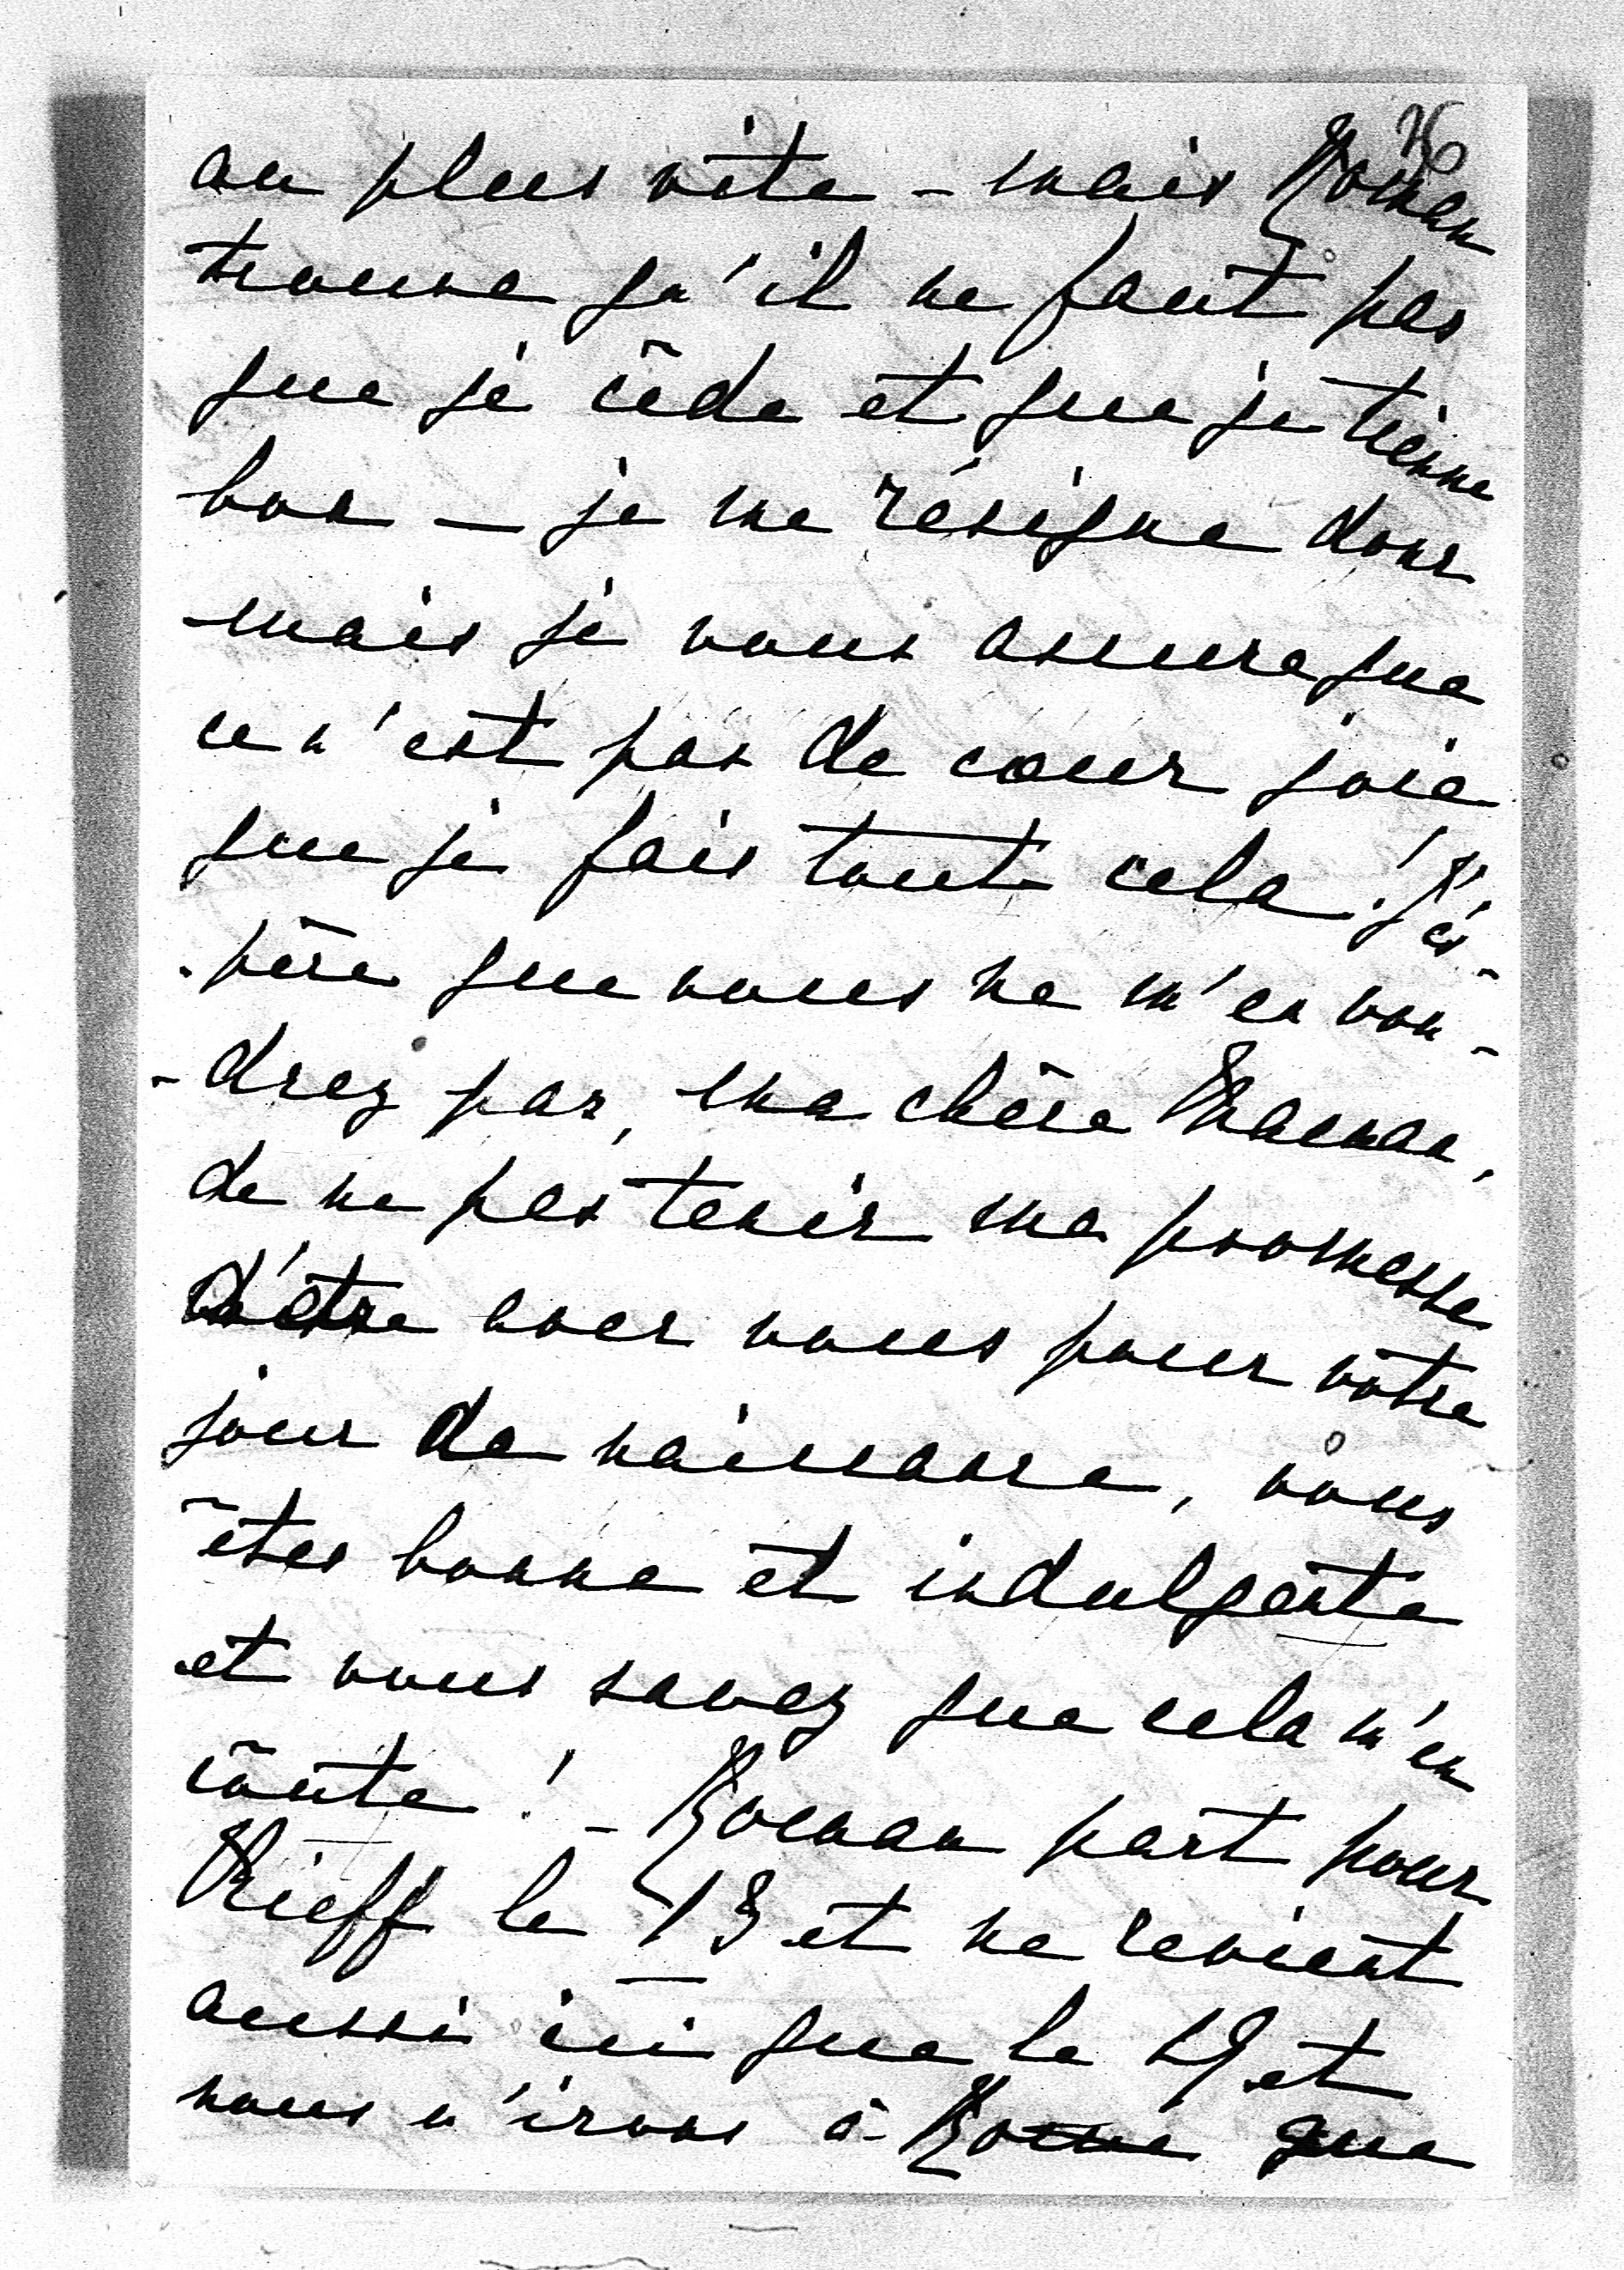 76
au plus vite - mais Roman
trouve qu'il ne faut pas
que je cède et que je tienne
bon — je me résigne donc
mais je vous assure que
ce n'est pas de cœur joie
que je fais tout cela! J'es-
-père que vous ne m'en vou-
-drez pas, ma chère Maman,
de ne pas tenir ma promesse
d'être avec vous pour votre
jour de naissance, vous
êtes bonne et indulgente
et vous savez que cela m'en
coûte! - Roman part pour
Kieff le 13 et ne revient
aussi ici que le 19 et
nous n'irons à que